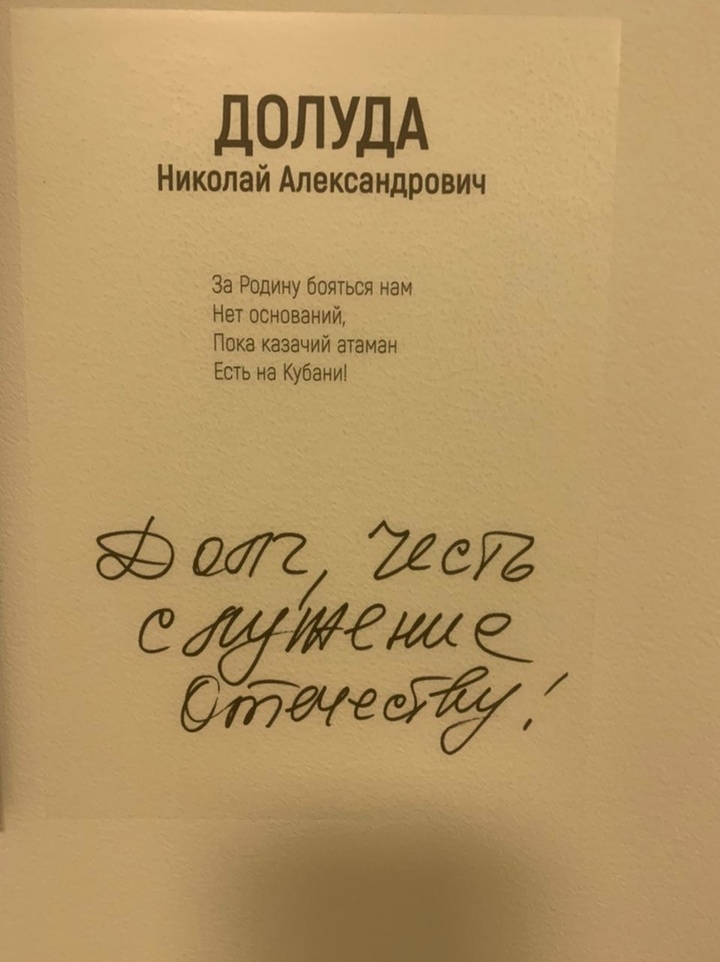 ДОЛУДА
Николай Александрович
За Родину бояться нам
Нет оснований,
Пока казачий атаман
Есть на Кубани!
Долг, честь
служение
Отечеству!